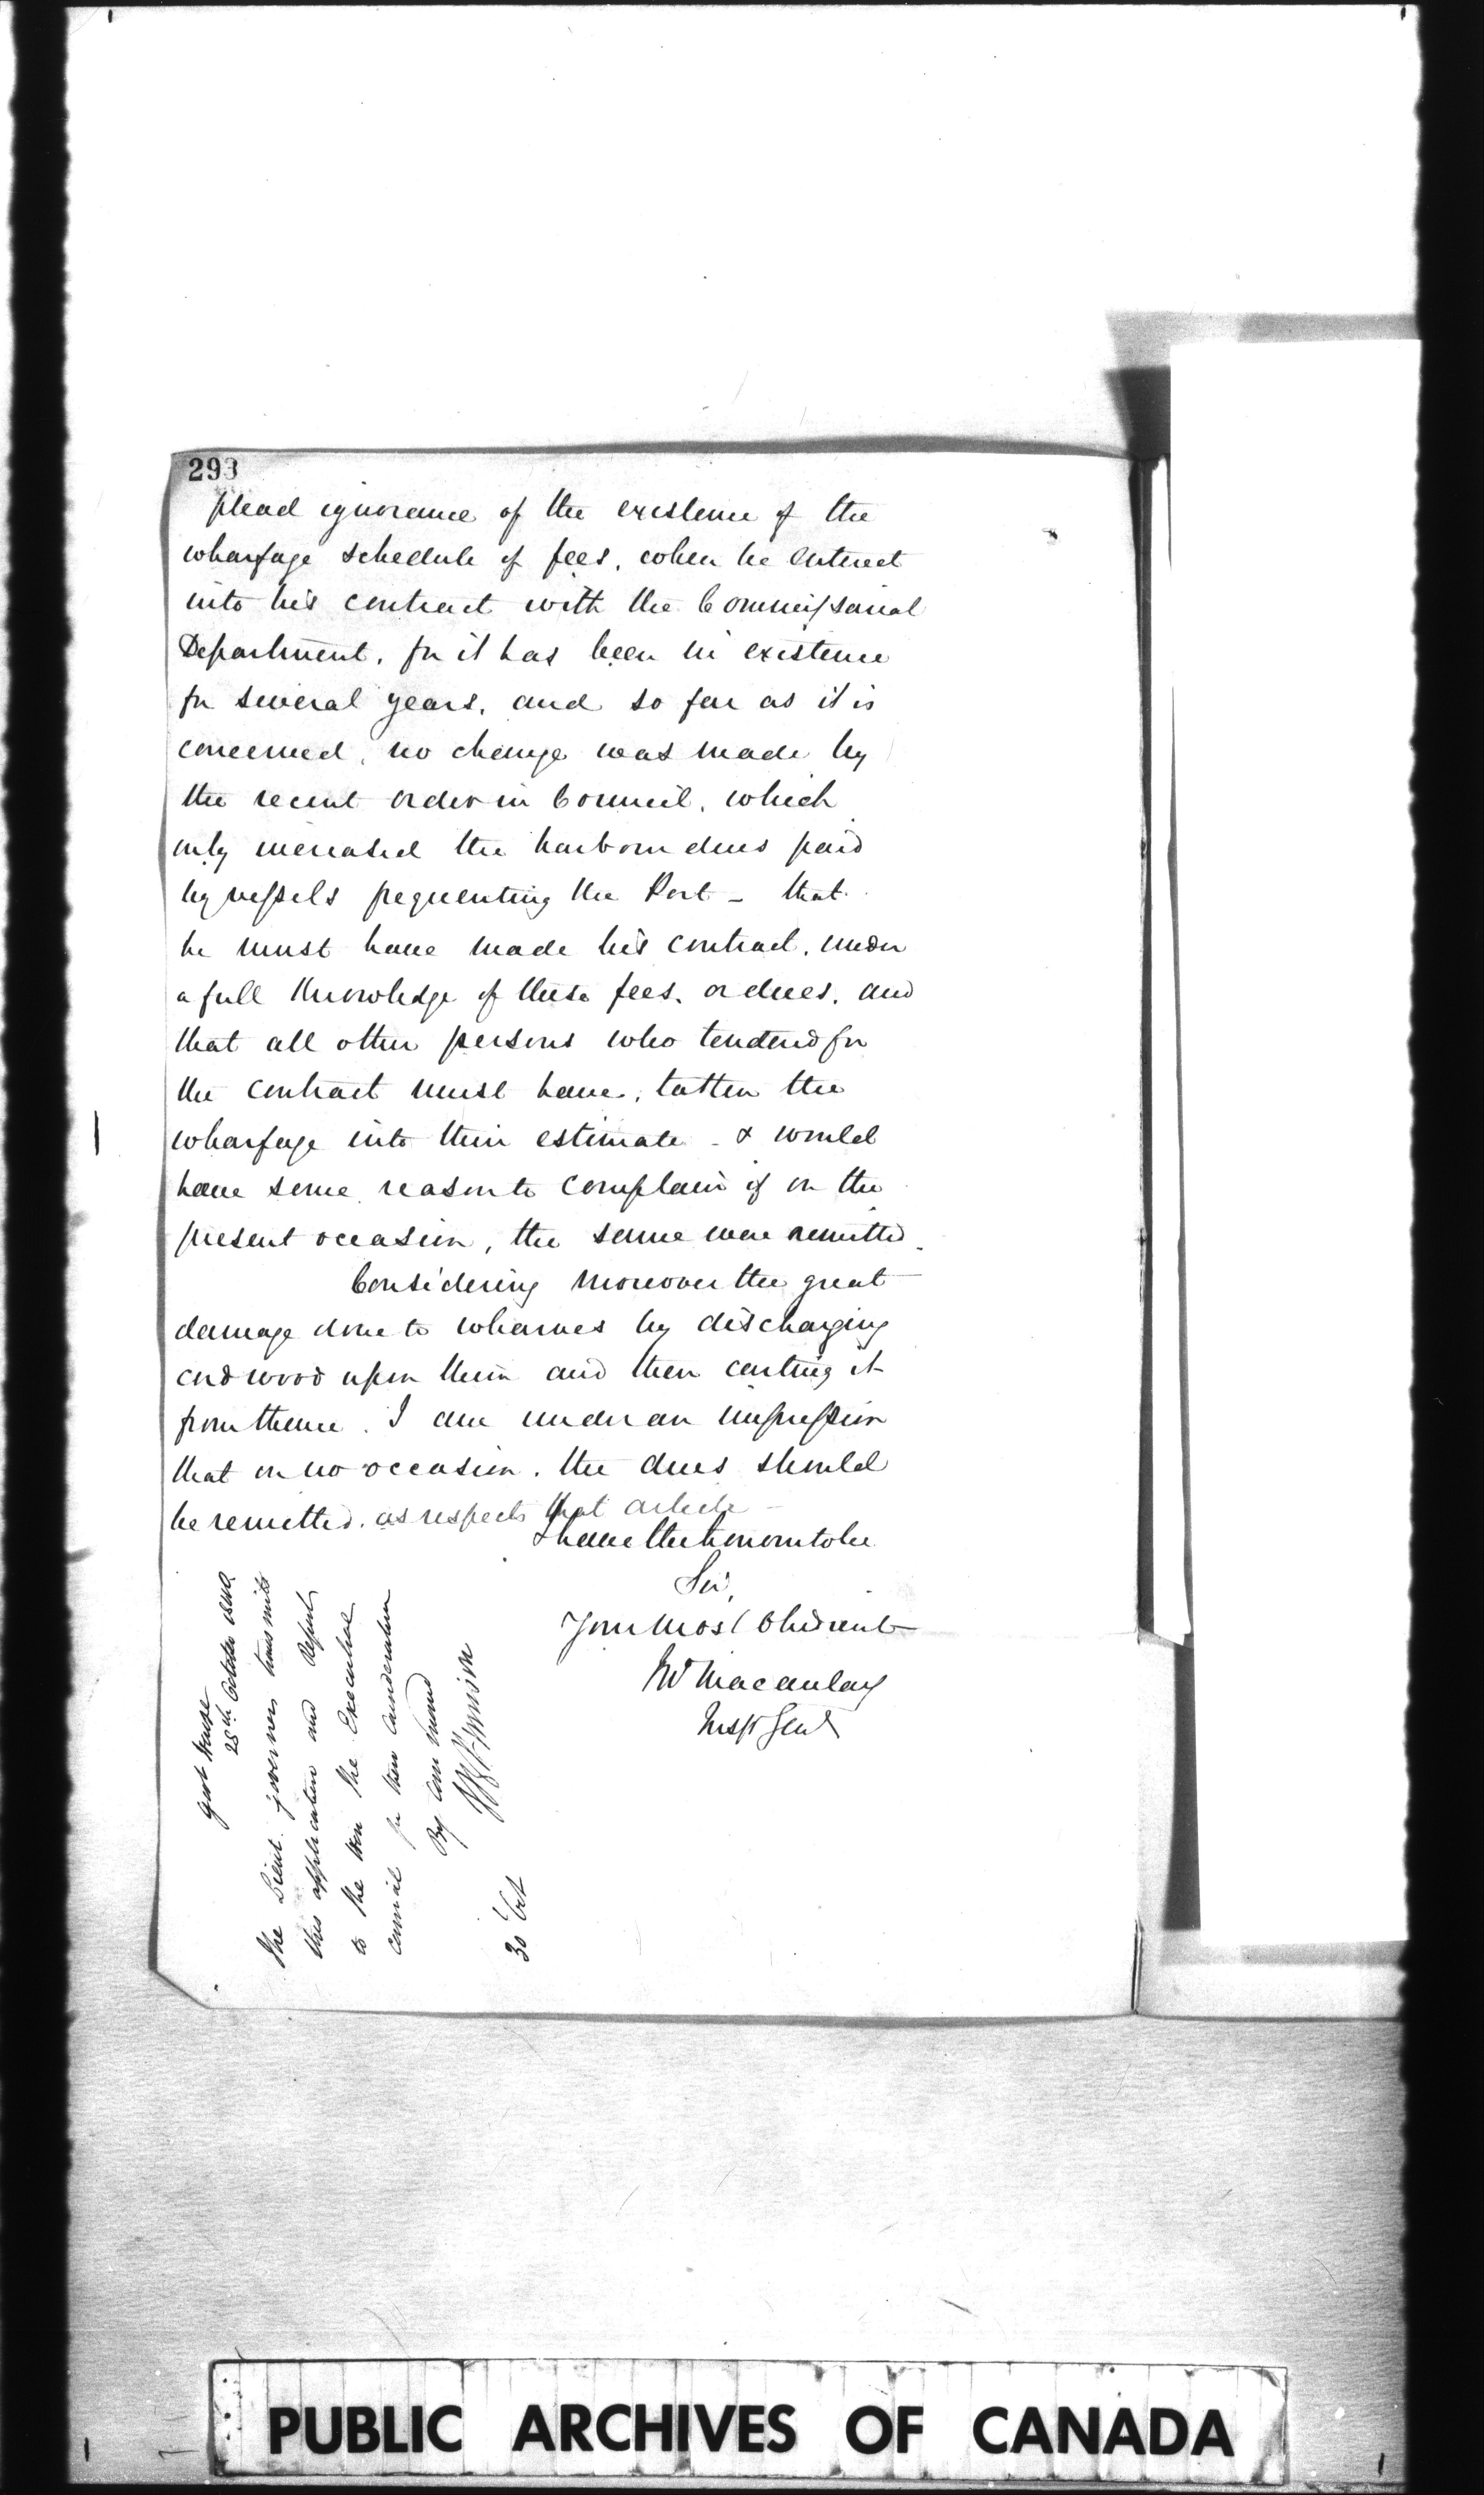 293
plead ignorance of the existence of the
wharfage schedule of fees, when he entered
into his contract with the Commissariat
Department, for it has been in existence
for several years, and so far as it is
concerned, no change was made by
the recent order in Council, which
only increased the harbour dues paid
by vessels frequenting the Port – that
he must have made his contract, under
a full knowledge of these fees, or dues, and
that all other persons who tendered for
the contract must have, taken the
wharfage into their estimate – & would
have some reason to complain if on the
present occasion, the same were remitted.
Considering moreover the great
damage done to wharves by discharging
cordwood upon them and then carting it
from thence. I am under an impression
that on no occasion, the dues should
be remitted, as respects that article –
I have the honour to be
Sir,
Your Most Obedient
Macaulay
Insp Genl
Govt House
28th October 1840.
The Lieut. Governor transmits
this application and Report
to the Hon the Executive
Council for their Consideration
By Command
30 Oct
PUBLIC ARCHIVES OF CANADA